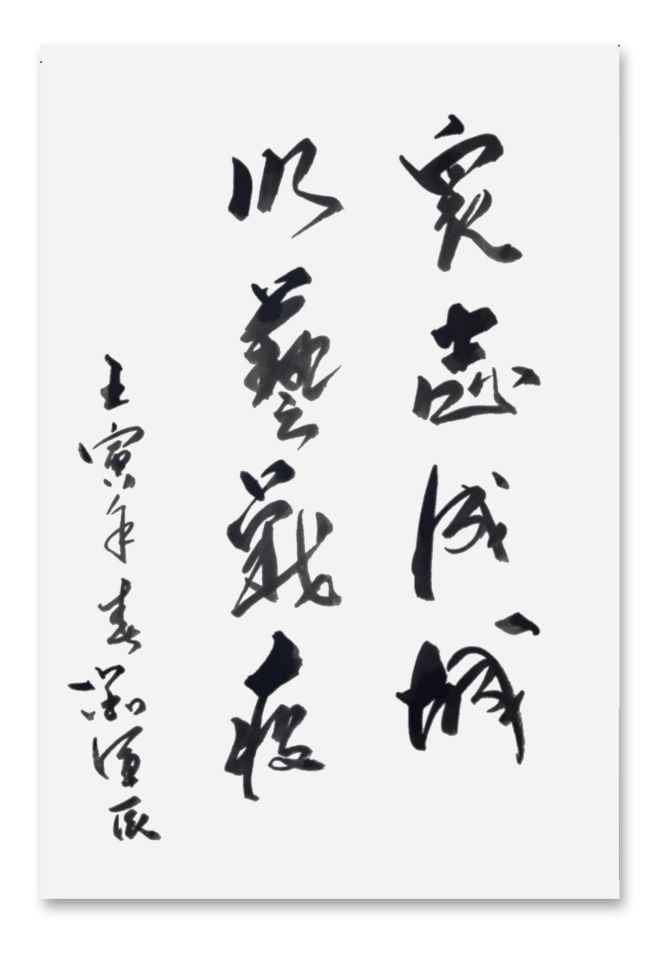 众志成城
以艺战疫
壬寅年春